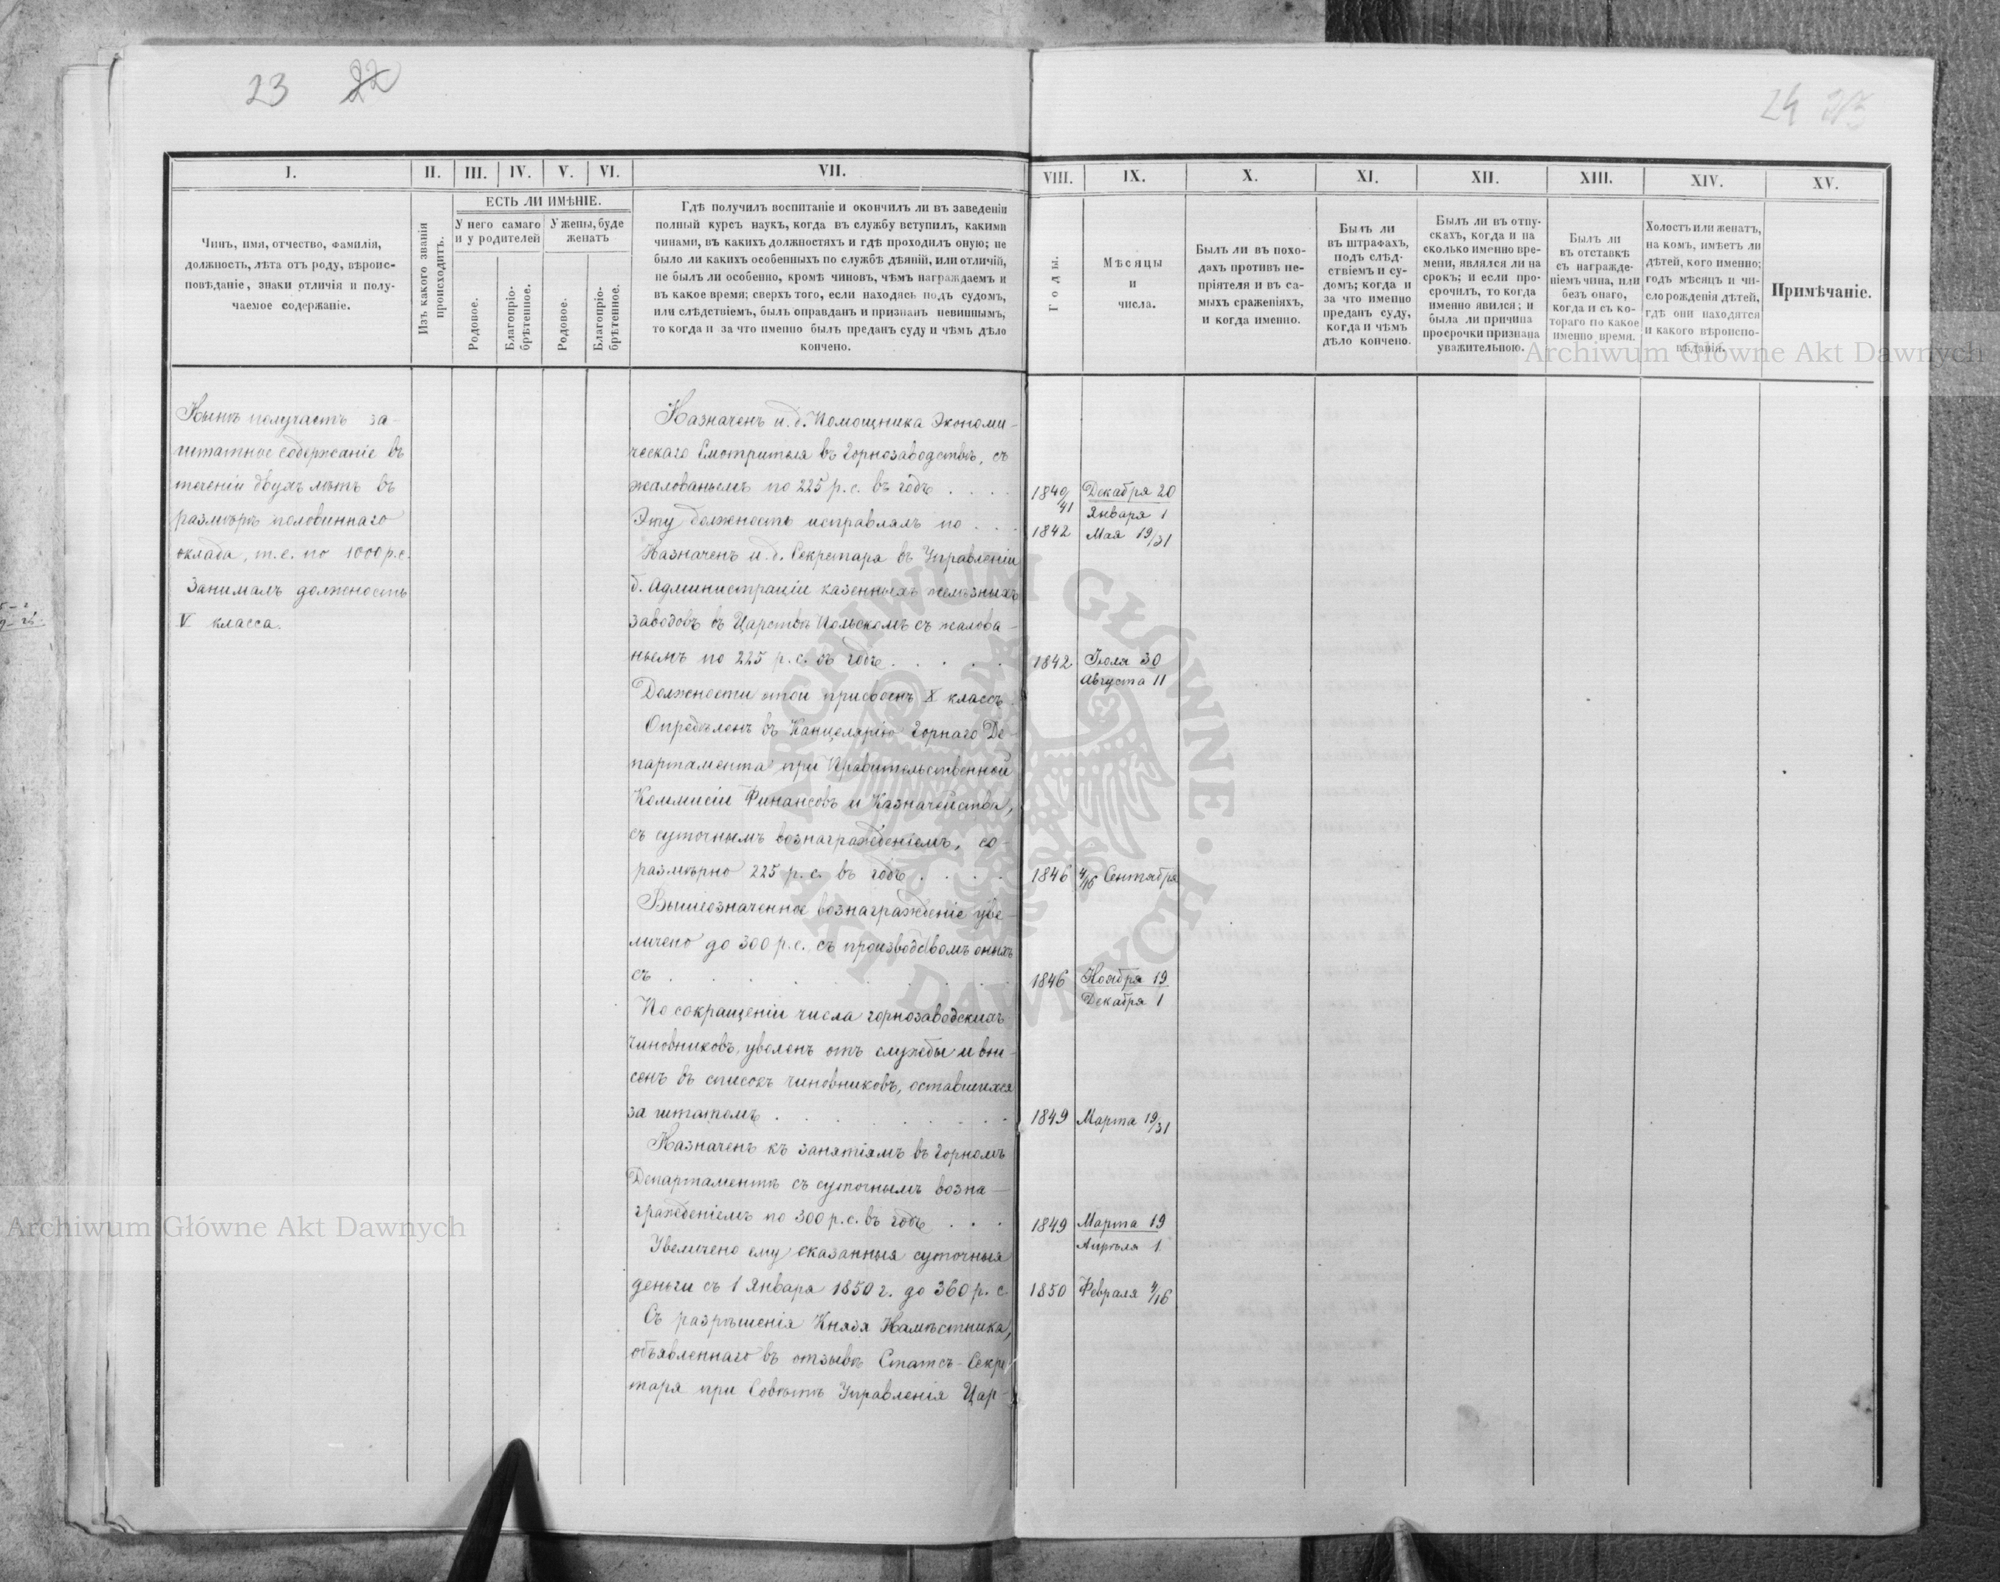 23 22
24 23
I.
II.
III.
IV.
V.
VI.
VII.
VIII.
IX.
X.
XI.
XII.
XIII.
XIV.
XV.
Чинъ, имя, отчество, фамилія,
должность, лѣта отъ роду, вѣроис-
повѣданіе, знаки отличія и полу-
чаемое содержаніе.
Изъ какого званія
происходитъ.
ЕСТЬ ЛИ ИМѢНІЕ.
У него самаго
и у родителей
У жены, буде
женатъ
Родовое.
Благопріо-
брѣтенное.
Родовое.
Благопріо-
брѣтенное.
Гдѣ получилъ воспитаніе и окончилъ ли въ заведеніи
полный курсъ наукъ, когда въ службу вступилъ, какими
чинами, въ какихъ должностяхъ и гдѣ проходилъ оную; не
было ли какихъ особенныхъ по службѣ дѣяній, или отличій,
не былъ ли особенно, кромѣ чиновъ, чѣмъ награждаемъ и
въ какое время; сверхъ того, если находясь подъ судомъ,
или слѣдствіемъ, былъ оправданъ и признанъ невиннымъ,
то когда и за что именно былъ преданъ суду и чѣмъ дѣло
кончено.
Годы.
Мѣсяцы
и
числа.
Былъ ли въ похо-
дахъ противъ не-
пріятеля и въ са-
мыхъ сраженіяхъ,
и когда именно.
Былъ ли
въ штрафахъ,
подъ слѣд-
ствіемъ и су-
домъ; когда и
за что именно
преданъ суду,
когда и чѣмъ
дѣло кончено.
Былъ ли въ отпу-
скахъ, когда и на
сколько именно вре-
мени, являлся ли на
срокъ; и если про-
срочилъ, то когда
именно явился; и
была ли причина
просрочки признана
уважительною.
Былъ ли
въ отставкѣ
съ награжде-
ніемъ чина, или
безъ онаго,
когда и съ ко-
тораго по какое
именно время.
Холостъ или женатъ,
на комъ, имѣетъ ли
дѣтей, кого именно;
годъ мѣсяцъ и чи-
сло рожденія дѣтей,
гдѣ они находятся
и какого вѣроиспо-
вѣданія.
Примѣчаніе.
Нынѣ получаетъ за-
штатное содержаніе въ
теченіи двухъ лѣтъ въ
размѣрѣ половиннаго
оклада, т.е. по 1000 р.с.
Занималъ должность
V класса.
Назначенъ и.д. Помощника Экономи-
ческаго Смотрителя въ Горнозаводствѣ, съ
жалованьемъ по 225 р.с. въ годъ . . . .
Эту должность исправлялъ по . . .
Назначенъ и.д. Секретаря въ Управленіи
б. Администраціи казенныхъ желѣзныхъ
заводовъ въ Царствѣ Польскомъ съ жалова-
ньемъ по 225 р.с. въ годъ . . . . .
Должности этой присвоенъ X классъ.
Опредѣленъ въ Канцелярію Горнаго Де-
партамента при Правительственной
Коммисіи Финансовъ и Казначейства,
съ суточнымъ вознагражденіемъ, со-
размѣрно 225 р.с. въ годъ . . . .
Вышеозначенное вознагражденіе уве-
личено до 300 р.с. съ производствомъ оныхъ
съ . . . . . . . . .
По сокращеніи числа горнозаводскихъ
чиновниковъ, уволенъ отъ службы и вне-
сенъ въ списокъ чиновниковъ, оставшихся
за штатомъ . . . . . . .
Назначенъ къ занятіямъ въ Горномъ
Департаментѣ съ суточнымъ возна-
гражденіемъ по 300 р.с. въ годъ . . .
Увеличено ему сказанныя суточныя
деньги съ 1 Января 1850 г. до 360 р.с.
Съ разрѣшенія Князя Намѣстника,
объявленнаго въ отзывѣ Статсъ-Секре-
таря при Совѣтѣ Управленія Цар-
1840/41 Декабря 20
Января 1
1842 Мая 19/31
1842 Іюля 30
Августа 11
1846 4/16 Сентября
1846 Ноября 19
Декабря 1
1849 Марта 19/31
1849 Марта 19
Апрѣля 1
1850 Февраля 4/16
Archiwum Główne Akt Dawnych
Archiwum Główne Akt Dawnych
ARCHIWUM GŁÓWNE AKT DAWNYCH